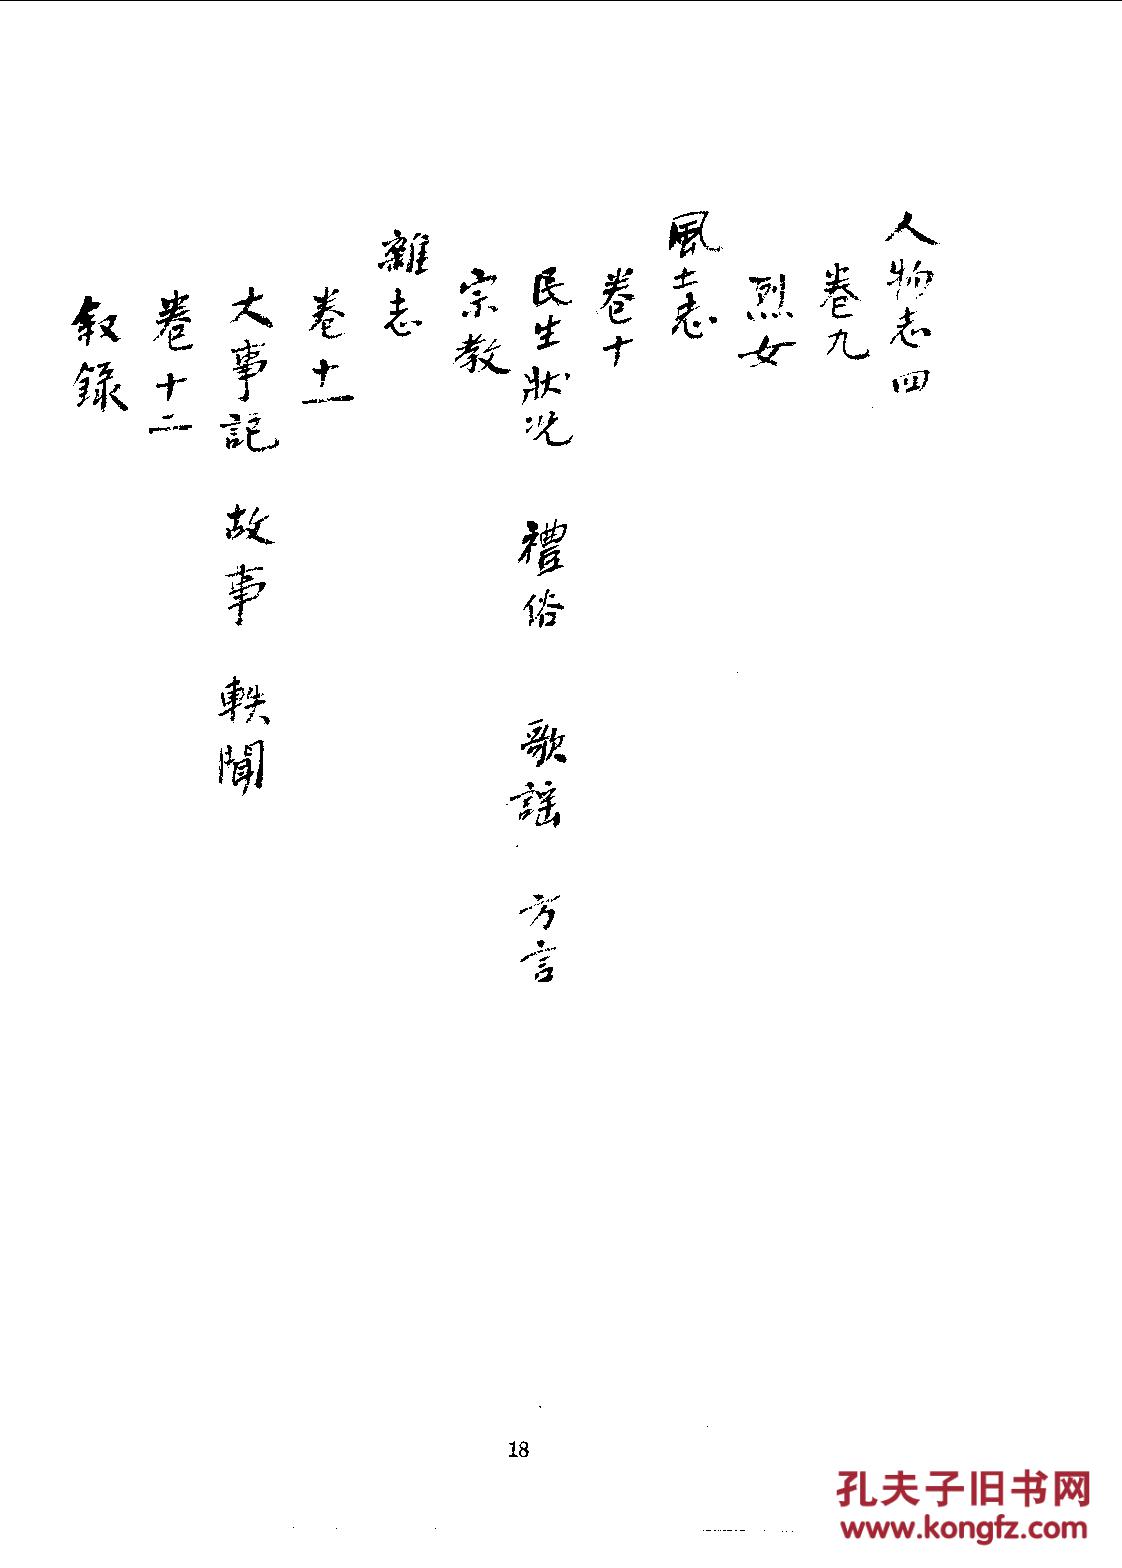 人物志四
卷九
烈女
風土志
卷十
民生狀况 禮俗 歌謡 方言
宗教
雜志
卷十一
大事記 故事 軼聞
卷十二
敘錄
18
孔夫子旧书网
www.kongfz.com